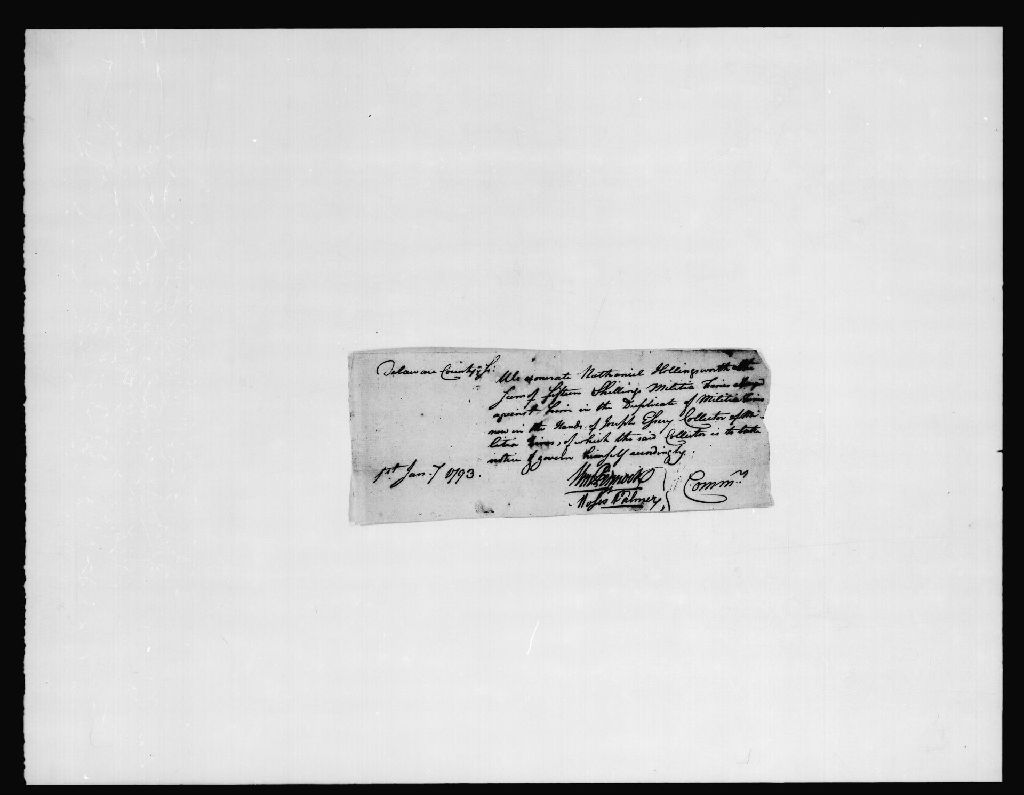 Delaware County Ss:
We exonerate Nathaniel Hollingsworth the
Sum of fifteen Shillings Militia Fines
against him in the Duplicate of Militia Fines
now in the Hands of Joseph Collector of Mi-
litia Fines, of which the said Collector is to take
notice & govern himself accordingly.
1st Jany 1793.
Moses Palmer
Commrs